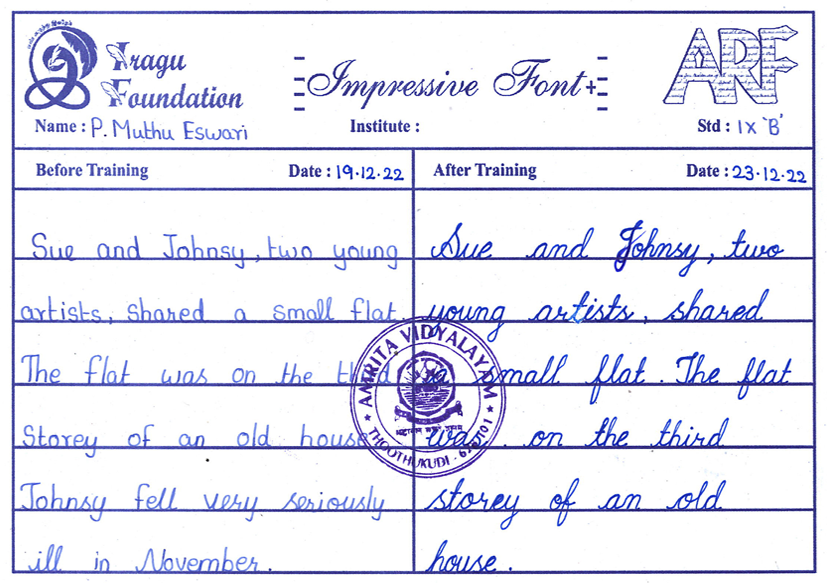 Iragu
Foundation
Impressive Font+
ARF
Name : P. Muthu Eswari
Institute :
Std : IX 'B'
Before Training
Date : 19.12.22
Sue and Johnsy, two young
artists, shared a small flat.
The flat was on the third
Storey of an old house
Johnsy fell very seriously
ill in November.
After Training
Date : 23.12.22
Sue and Johnsy, two
young artists, shared
a small flat. The flat
was on the third
storey of an old
house.
AMRITA VIDYALAYAM
THOOTHUKUDI -